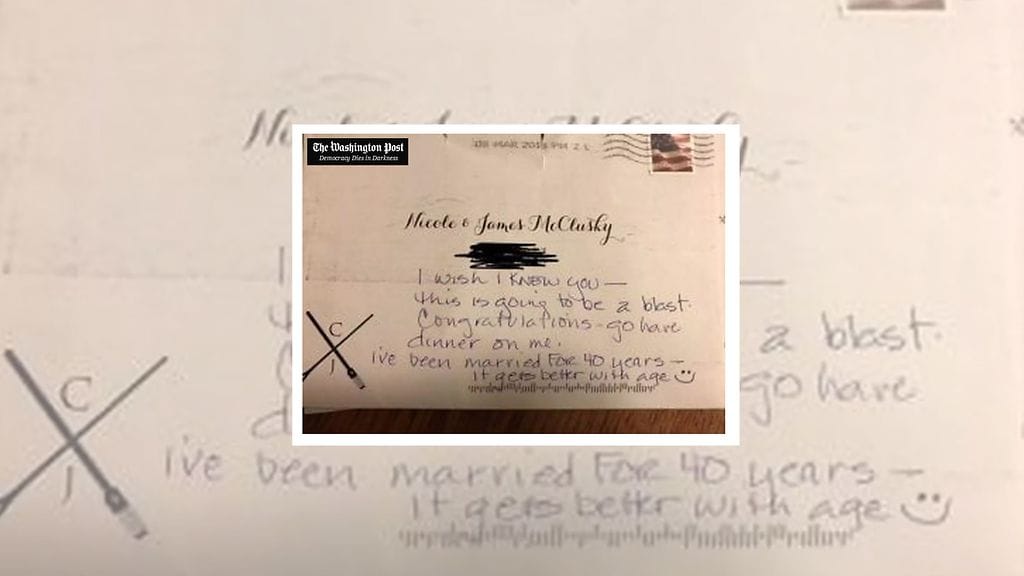 The Washington Post
Democracy Dies in Darkness
08 MAR 2018 PM 2 L
Nicole & James McClusky
I wish I knew you —
this is going to be a blast.
Congratulations - go have
dinner on me.
C
J
i've been married for 40 years —
it gets better with age